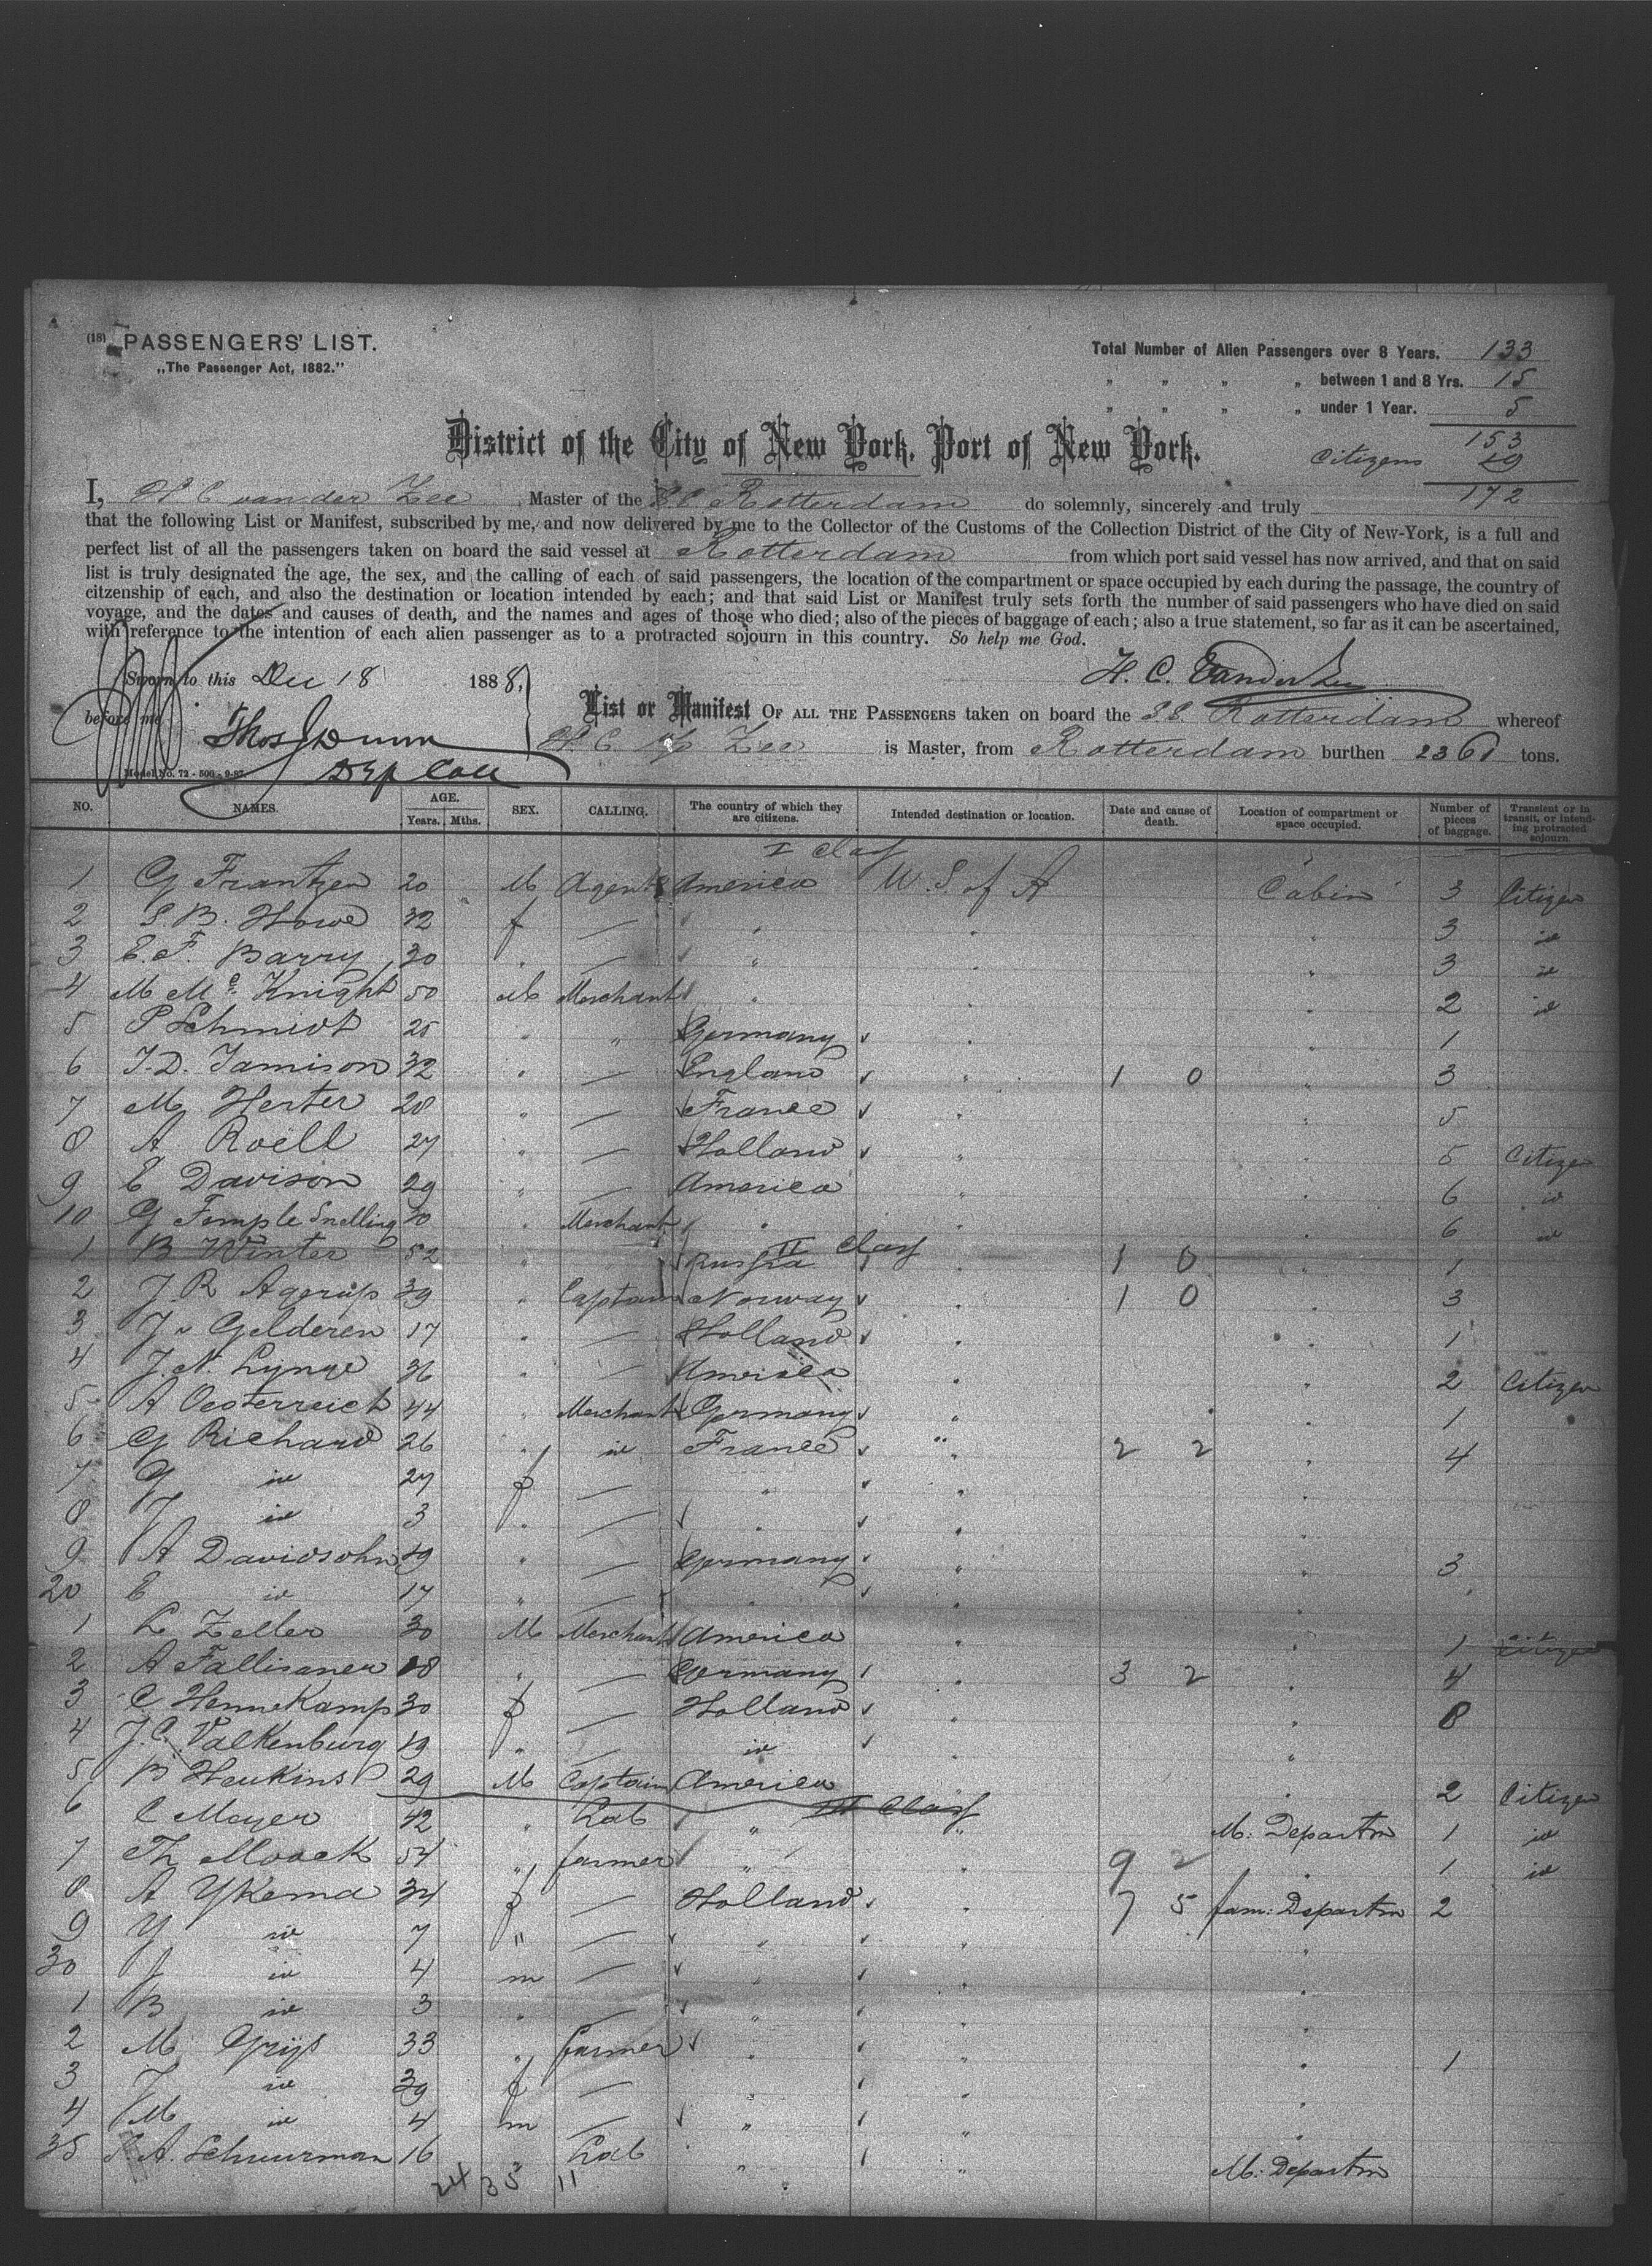 (18) PASSENGERS' LIST.
„The Passenger Act, 1882."
Total Number of Alien Passengers over 8 Years. 133
„ „ „ „ between 1 and 8 Yrs. 15
„ „ „ „ under 1 Year. 5
153
District of the City of New York, Port of New York.
Citizens 19
172
I, H C van der Zee Master of the S.S. Rotterdam do solemnly, sincerely and truly
that the following List or Manifest, subscribed by me, and now delivered by me to the Collector of the Customs of the Collection District of the City of New-York, is a full and
perfect list of all the passengers taken on board the said vessel at Rotterdam from which port said vessel has now arrived, and that on said
list is truly designated the age, the sex, and the calling of each of said passengers, the location of the compartment or space occupied by each during the passage, the country of
citzenship of each, and also the destination or location intended by each; and that said List or Manifest truly sets forth the number of said passengers who have died on said
voyage, and the dates and causes of death, and the names and ages of those who died; also of the pieces of baggage of each; also a true statement, so far as it can be ascertained,
with reference to the intention of each alien passenger as to a protracted sojourn in this country. So help me God.
Sworn to this Dec 18 1888,
H. C. Vanderzee
before me
Thos J Dunn
Dep Coll
List or Manifest OF ALL THE PASSENGERS taken on board the S.S. Rotterdam whereof
H. C. v d Zee is Master, from Rotterdam burthen 2361 tons.
Model No. 72 - 500 - 9-87.
NO. NAMES. AGE. Years. Mths. SEX. CALLING. The country of which they are citizens. Intended destination or location. Date and cause of death. Location of compartment or space occupied. Number of pieces of baggage. Transient or in transit, or intending protracted sojourn
I Class
1 G Frantzen 20 M Agent America U. S. of A Cabin 3 Citizen
2 S. B. Howe 32 f — " " " 3 id
3 E. F. Barry 30 " — " " " 3 id
4 M Mc Knight 50 M Merchant " " " 2 id
5 P Schmidt 25 " " Germany " " 1
6 J. D. Jamison 32 " — England " 1 0 " 3
7 M Herter 28 " — France " " 5
8 A Roëll 27 " — Holland " " 5 Citizen
9 E Davison 29 " — America " " 6 id
10 G Temple Snelling " Merchant " " " 6 id
II Class
1 B Winter 52 " Russia " 1 0 " 1
2 J R Agerup 39 " Captain Norway " 1 0 " 3
3 J v Gelderen 17 " — Holland " " 1
4 J. N. Lynge 36 " — America " " 2 Citizen
5 A Oesterreich 44 " Merchant Germany " " 1
6 G Richard 26 " id France " 2 2 " 4
7 G id 27 f — " "
8 J id 3 " — " "
9 A Davidsohn 19 " — Germany " " 3
20 E id 17 " — " " "
1 L Zeller 30 M Merchant America " " 1 Citizen
2 A Fallisaner 18 " — Germany " 3 2 " 4
3 C Hennekamp 30 f — Holland " " 8
4 J. C. Valkenburg 19 " — id " "
5 B Heukins 29 M Captain America " " 2 Citizen
III Class
6 C Meyer 42 " Lab " " M: Departm 1 id
7 Th Moack 54 " farmer " " 9 2 " 1 id
8 A Ykema 34 f — Holland " 7 5 fam: Departm 2
9 Y id 7 " — " " "
30 J id 4 m — " " "
1 B id 3 " — " "
2 M Grijs 33 " farmer " " " 1
3 J id 39 f — " "
4 M id 4 m — " " "
35 A. Schuurman 16 " Lab " " M: Departm
24 35 11